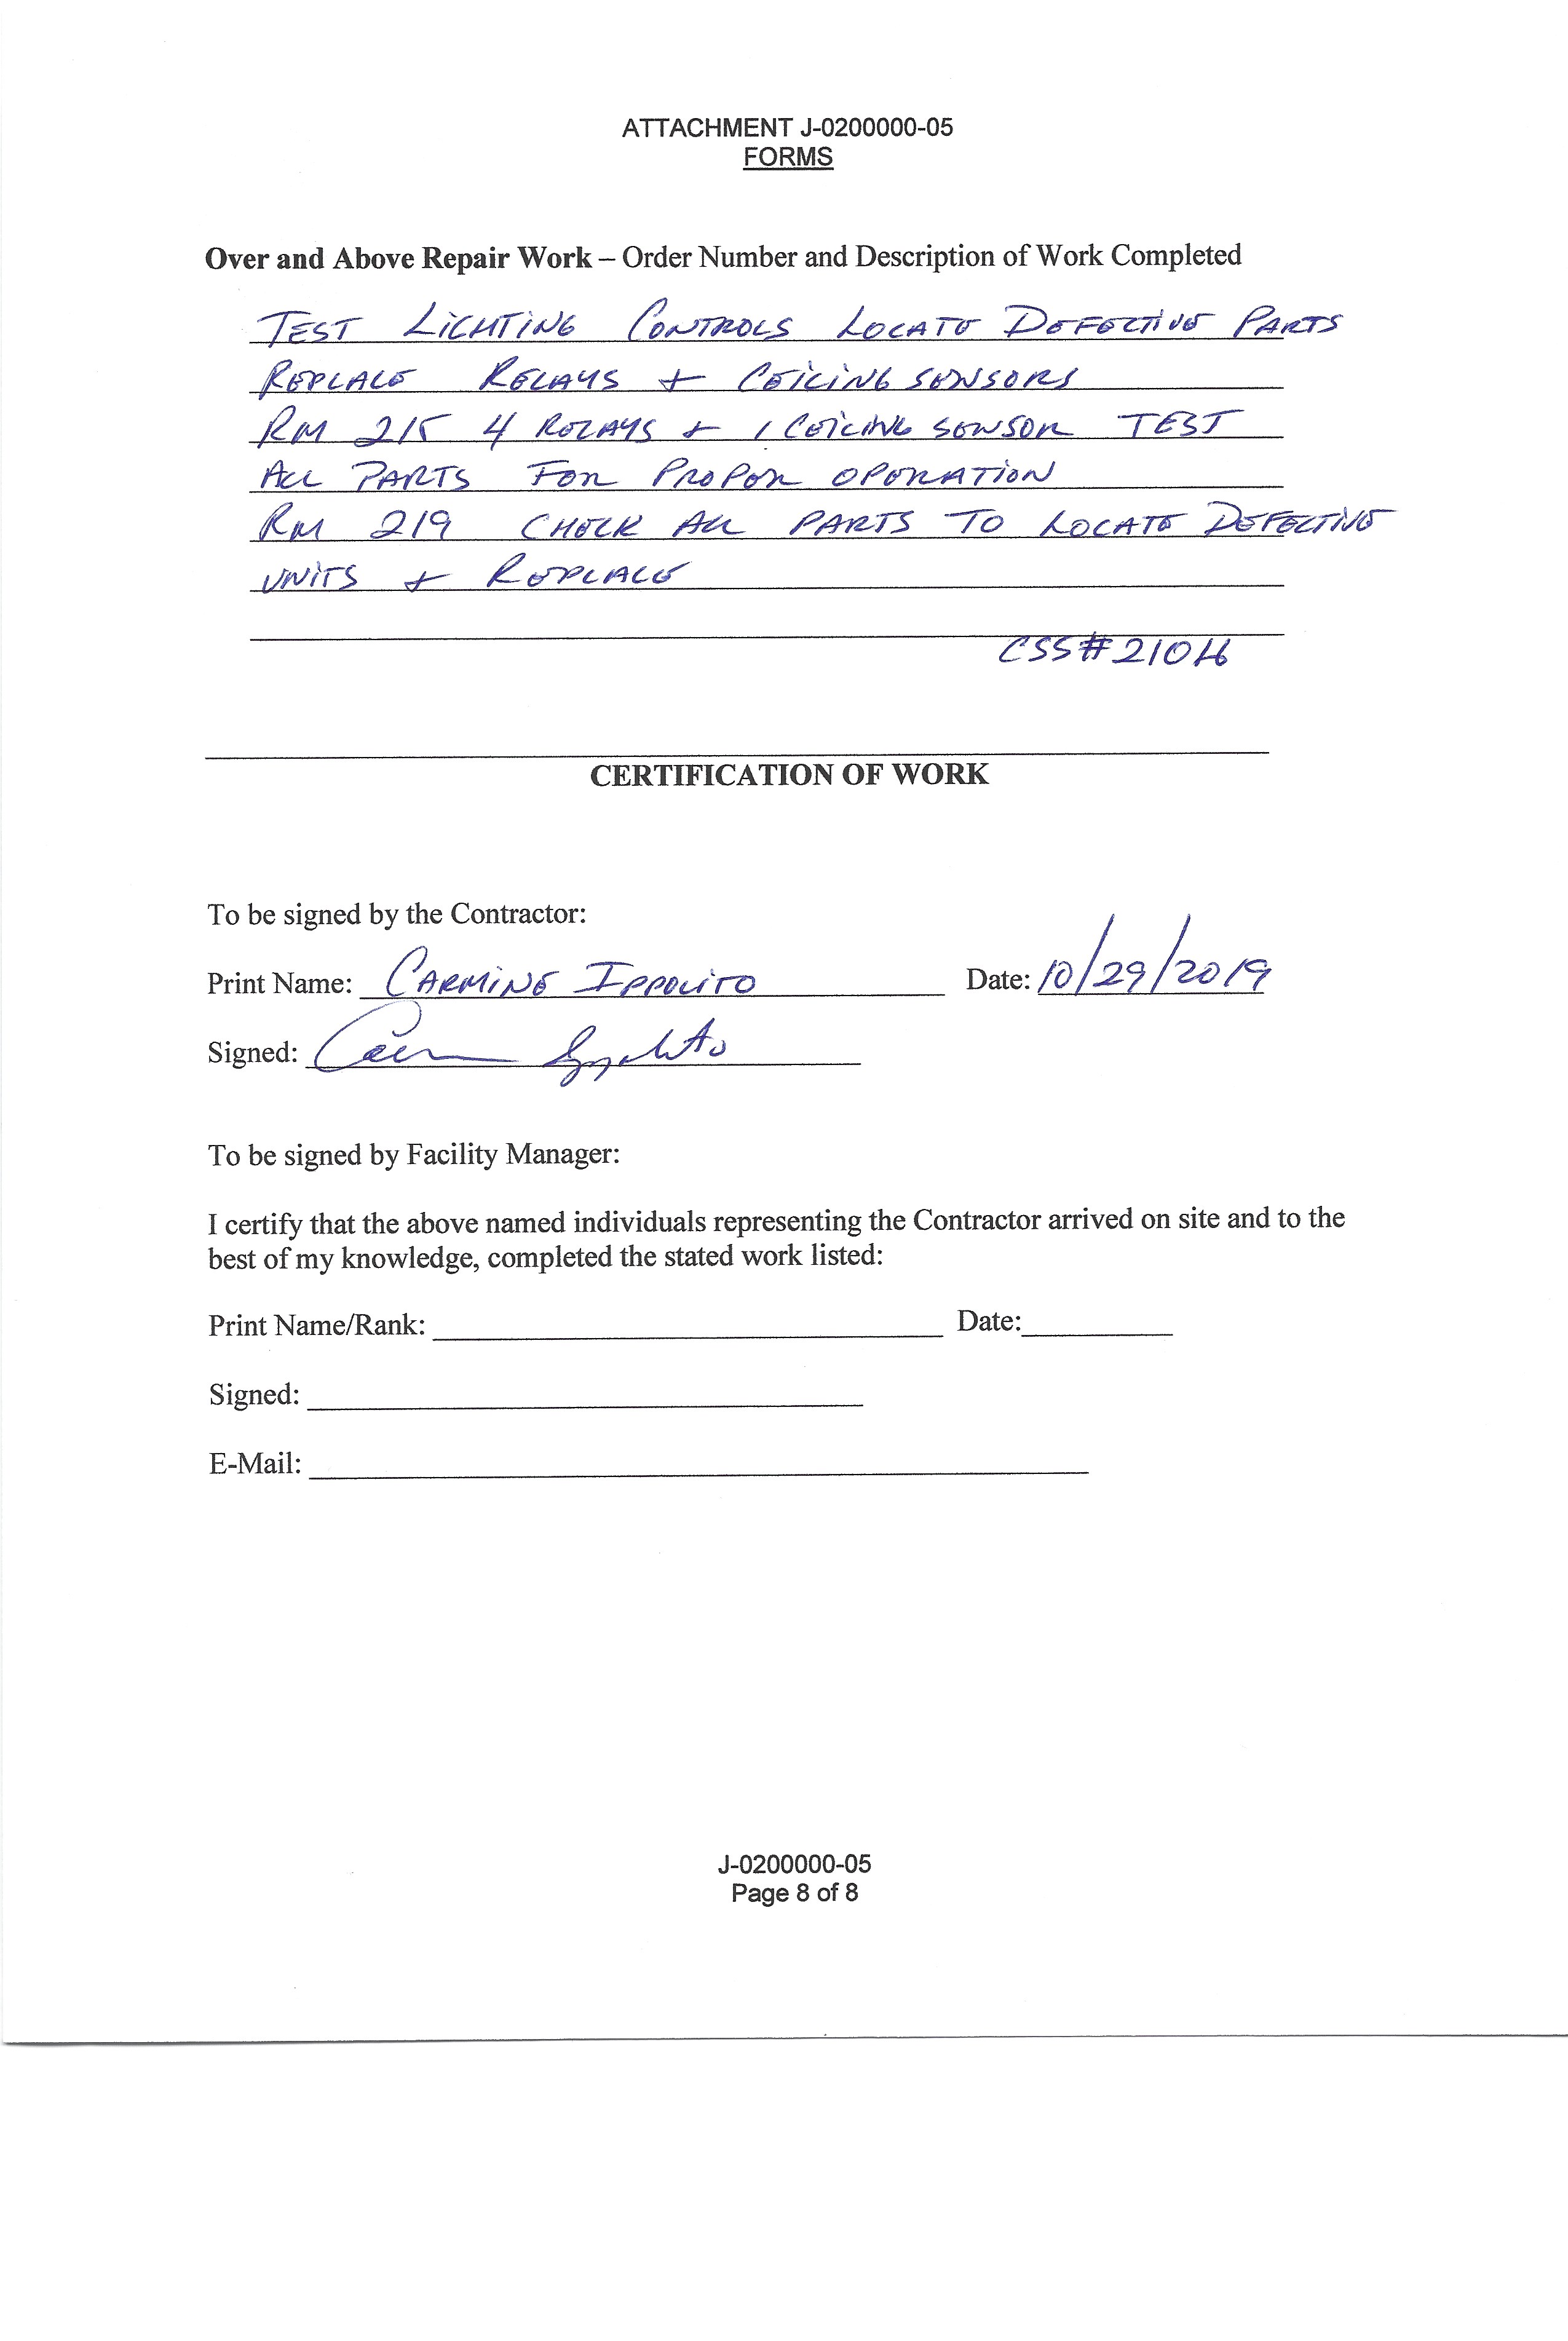 ATTACHMENT J-0200000-05
FORMS
Over and Above Repair Work – Order Number and Description of Work Completed
TEST LIGHTING CONTROLS LOCATE DEFECTIVE PARTS
REPLACE RELAYS + CEILING SENSORS
RM 215 4 RELAYS + 1 CEILING SENSOR TEST
ALL PARTS FOR PROPER OPERATION
RM 219 CHECK ALL PARTS TO LOCATE DEFECTIVE
UNITS + REPLACE
CSS#2104
CERTIFICATION OF WORK
To be signed by the Contractor:
Print Name: CARMINE IPPOLITO Date: 10/29/2019
Signed: Carmine Ippolito
To be signed by Facility Manager:
I certify that the above named individuals representing the Contractor arrived on site and to the
best of my knowledge, completed the stated work listed:
Print Name/Rank: Date:
Signed:
E-Mail:
J-0200000-05
Page 8 of 8